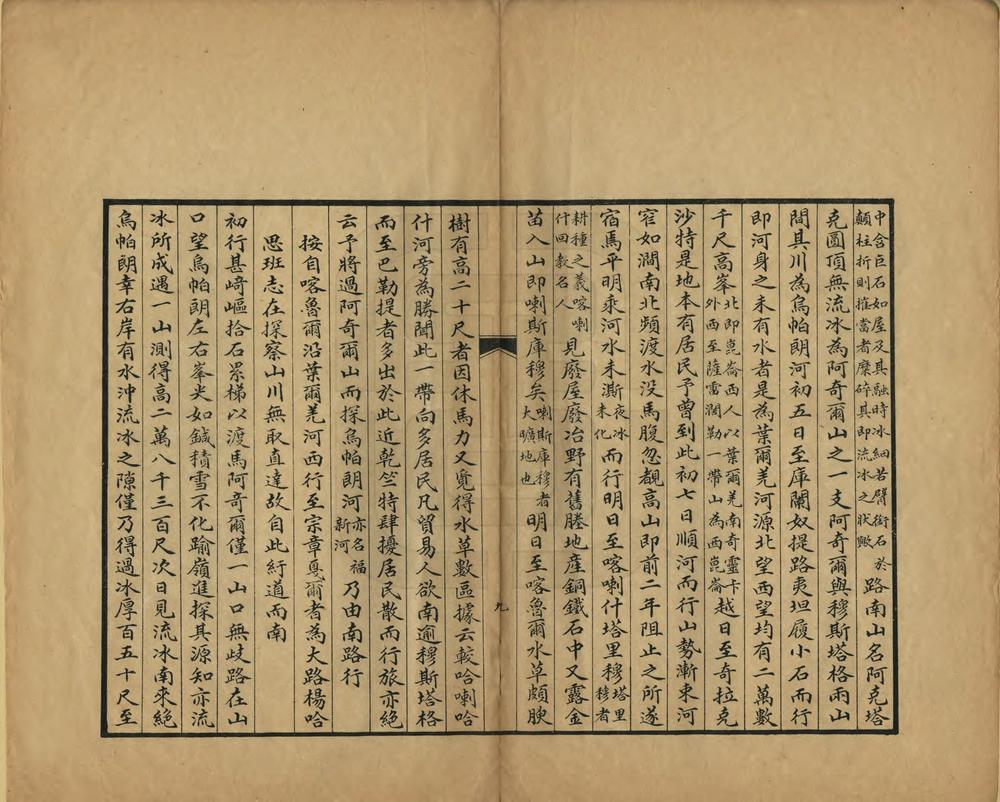 中含巨石如屋及其融時冰細若臂銜石於
顛柱折則摧當者糜碎其即流冰之狀歟
路南山名阿克塔
克圓頂無流冰為阿奇爾山之一支阿奇爾與穆斯塔格兩山
間其川為烏帕朗河初五日至庫闌奴提路夷坦履小石而行
即河身之未有水者是為葉爾羌河源北望西望均有二萬數
千尺高峯北即崑崙西人以葉爾羌南奇靈卡
外西至薩雷濶勒一帶山為西崑崙越日至奇拉克
沙特是地本有居民予曾到此初七日順河而行山勢漸束河
窄如澗南北頻渡水没馬腹忽覩高山即前二年阻止之所遂
宿焉平明乘河水未澌夜冰
未化而行明日至喀喇什塔里穆塔里
穆者
耕種之義喀喇
什回教名人見廢屋廢冶野有舊塍地産銅鐵石中又露金
苗入山即喇斯庫穆矣喇斯庫穆者
大曠地也明日至喀魯爾水草頗腴
九
樹有高二十尺者因休馬力又覓得水草數區據云較哈喇哈
什河旁為勝聞此一帶向多居民凡貿易人欲南逾穆斯塔格
而至巴勒提者多出於此近乾竺特肆擾居民散而行旅亦絶
云予將過阿奇爾山而探烏帕朗河亦名福
新河乃由南路行
按自喀魯爾沿葉爾羌河西行至宗章戞爾者為大路楊哈
思班志在探察山川無取直達故自此紆道而南
初行甚崎嶇拾石累梯以渡馬阿奇爾僅一山口無歧路在山
口望烏帕朗左右峯尖如鍼積雪不化踰嶺進探其源知亦流
冰所成遇一山測得高二萬八千三百尺次日見流冰南來絶
烏帕朗幸右岸有水沖流冰之隙僅乃得過冰厚百五十尺至